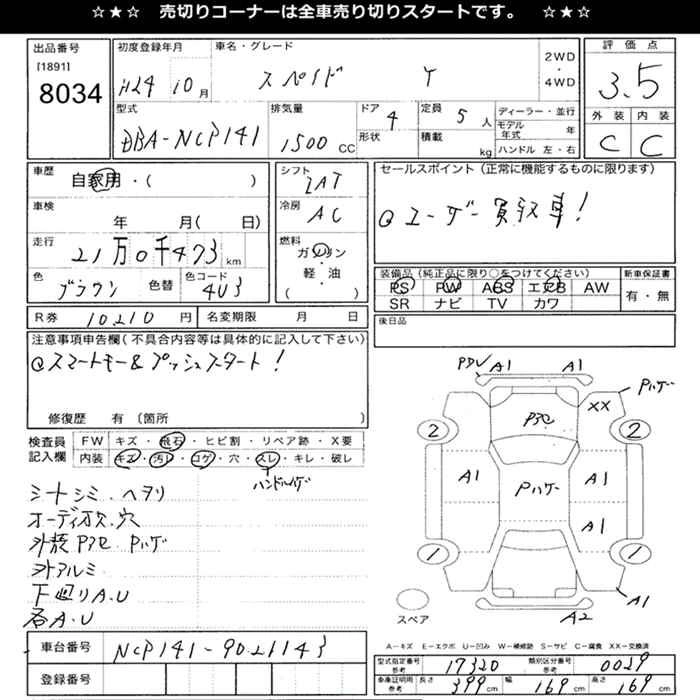 ☆★☆ 売切りコーナーは全車売り切りスタートです。 ☆★☆
出品番号 初度登録年月 車名・グレード 2WD・4WD 評価点
[1891]
8034 H24 10月 スペイド Y 3.5
型式 排気量 ドア 4 定員 5人 ディーラー・並行 外装 内装
DBA-NCP141 1500 CC 形状 積載 kg モデル年式 年 C C
ハンドル 左・右
車歴 自家用・( ) シフト IAT セールスポイント(正常に機能するものに限ります)
車検 年 月( 日) 冷房 AC @ユーザー買取車!
走行 21万0千473km 燃料 ガソリン・軽・油 ( )
色 ブラウン 色替 色コード 4U3
装備品(純正品に限り○をつけてください) 新車保証書
PS PW ABS エアB AW 有・無
SR ナビ TV カワ
R券 10210円 名変期限 月 日 後日品
注意事項申告欄(不具合内容等は具体的に記入して下さい)
@スマートキー&プッシュスタート!
修復歴 有 (箇所
検査員記入欄 FW キズ・飛石・ヒビ割・リペア跡・X要
内装 キズ・汚レ・コゲ・穴・スレ・キレ・破レ
ハンドルハゲ
シートシミ・ヘタリ
オーディオ欠・穴
外装P Pハゲ
外アルミ
下廻りA.U
各A.U
A1 A1 Pハゲ
XX
2 2
A1 Pハゲ A1
A1
1 1
スペア A2
車台番号 NCP141-9021143
登録番号
A-キズ E-エクボ U-凹み W-補修跡 S-サビ C-腐食 XX-交換済
型式指定番号 参考 17320 類別区分番号 参考 0029
車庫証明用 参考 長さ 399cm 幅 169cm 高さ 169cm